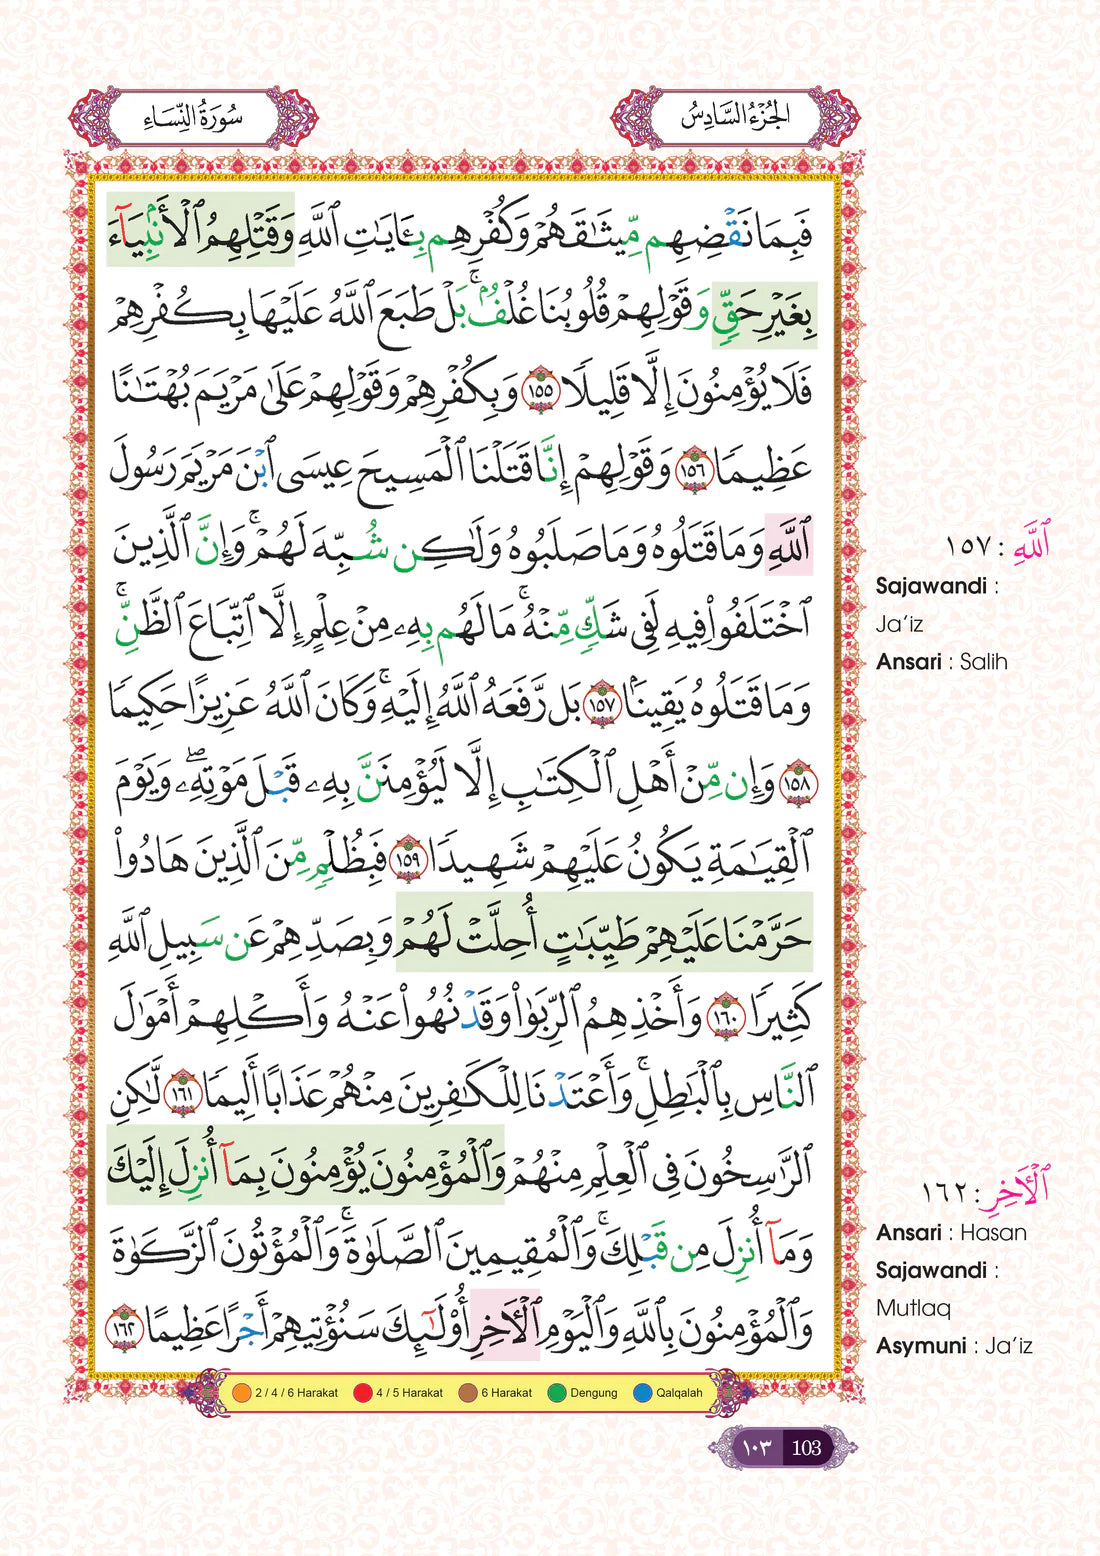 سُورَةُ النِّسَاءِ
الجُزْءُ السَّادِسُ
فَبِمَا نَقْضِهِم مِّيثَٰقَهُمْ وَكُفْرِهِم بِـَٔايَٰتِ ٱللَّهِ وَقَتْلِهِمُ ٱلْأَنۢبِيَآءَ
بِغَيْرِ حَقٍّ وَقَوْلِهِمْ قُلُوبُنَا غُلْفٌۢ ۚ بَلْ طَبَعَ ٱللَّهُ عَلَيْهَا بِكُفْرِهِمْ
فَلَا يُؤْمِنُونَ إِلَّا قَلِيلًا ١٥٥ وَبِكُفْرِهِمْ وَقَوْلِهِمْ عَلَىٰ مَرْيَمَ بُهْتَٰنًا
عَظِيمًا ١٥٦ وَقَوْلِهِمْ إِنَّا قَتَلْنَا ٱلْمَسِيحَ عِيسَى ٱبْنَ مَرْيَمَ رَسُولَ
ٱللَّهِ وَمَا قَتَلُوهُ وَمَا صَلَبُوهُ وَلَٰكِن شُبِّهَ لَهُمْ ۚ وَإِنَّ ٱلَّذِينَ
ٱخْتَلَفُوا۟ فِيهِ لَفِى شَكٍّ مِّنْهُ ۚ مَا لَهُم بِهِۦ مِنْ عِلْمٍ إِلَّا ٱتِّبَاعَ ٱلظَّنِّ ۚ
وَمَا قَتَلُوهُ يَقِينًۢا ١٥٧ بَل رَّفَعَهُ ٱللَّهُ إِلَيْهِ ۚ وَكَانَ ٱللَّهُ عَزِيزًا حَكِيمًا
١٥٨ وَإِن مِّنْ أَهْلِ ٱلْكِتَٰبِ إِلَّا لَيُؤْمِنَنَّ بِهِۦ قَبْلَ مَوْتِهِۦ ۖ وَيَوْمَ
ٱلْقِيَٰمَةِ يَكُونُ عَلَيْهِمْ شَهِيدًا ١٥٩ فَبِظُلْمٍ مِّنَ ٱلَّذِينَ هَادُوا۟
حَرَّمْنَا عَلَيْهِمْ طَيِّبَٰتٍ أُحِلَّتْ لَهُمْ وَبِصَدِّهِمْ عَن سَبِيلِ ٱللَّهِ
كَثِيرًا ١٦٠ وَأَخْذِهِمُ ٱلرِّبَوٰا۟ وَقَدْ نُهُوا۟ عَنْهُ وَأَكْلِهِمْ أَمْوَٰلَ
ٱلنَّاسِ بِٱلْبَٰطِلِ ۚ وَأَعْتَدْنَا لِلْكَٰفِرِينَ مِنْهُمْ عَذَابًا أَلِيمًا ١٦١ لَّٰكِنِ
ٱلرَّٰسِخُونَ فِى ٱلْعِلْمِ مِنْهُمْ وَٱلْمُؤْمِنُونَ يُؤْمِنُونَ بِمَآ أُنزِلَ إِلَيْكَ
وَمَآ أُنزِلَ مِن قَبْلِكَ ۚ وَٱلْمُقِيمِينَ ٱلصَّلَوٰةَ ۚ وَٱلْمُؤْتُونَ ٱلزَّكَوٰةَ
وَٱلْمُؤْمِنُونَ بِٱللَّهِ وَٱلْيَوْمِ ٱلْـَٔاخِرِ أُو۟لَٰٓئِكَ سَنُؤْتِيهِمْ أَجْرًا عَظِيمًا ١٦٢
ٱللَّهِ : ١٥٧
Sajawandi :
Ja’iz
Ansari : Salih
ٱلْـَٔاخِرِ : ١٦٢
Ansari : Hasan
Sajawandi :
Mutlaq
Asymuni : Ja’iz
2 / 4 / 6 Harakat 4 / 5 Harakat 6 Harakat Dengung Qalqalah
١٠٣ 103